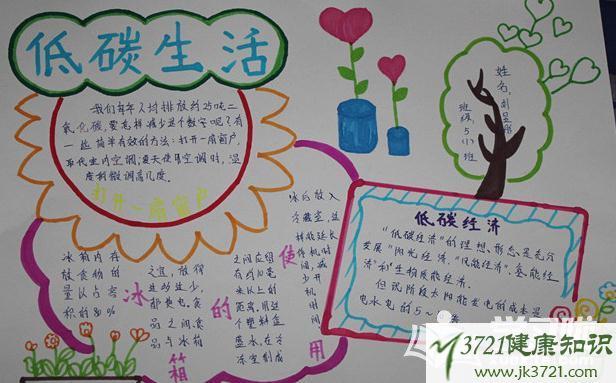 低碳生活
我们每年人均排放约25吨二
氧化碳,要怎样减少这个数字呢?有
一些简单有效的方法:打开一扇窗户,
取代室内空调,夏天使用空调时,温
度稍微调高几度。
打开一扇窗户
冰箱的使用
冰箱内存
放食物的
量以占容
积的80%
之宜,放得
过多过少,
都费电。食
品之间食
品与冰箱
之间应留
有约10毫
米以上的
距离。用
盒
盐水,在冷
冻室制成
冰后放入
冷藏室,这
样能延长
停机时
间,减
少开
机时
间
姓名:
班级:5(1)班
低碳经济
"低碳经济"的理想形态是充分
发展"阳光经济"、"风能经济"、氢能经
济"和"生物质能经济。
但现阶段太阳能发电的成本是
电水电的5~
3721健康知识
www.jk3721.com